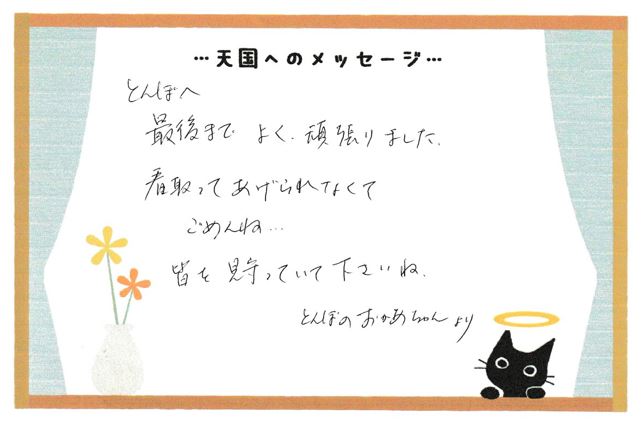 …天国へのメッセージ…
とんぼへ
最後まで よく、頑張りました。
看取ってあげられなくて
ごめんね…
皆を見守っていて下さいね。
とんぼのおかあちゃんより